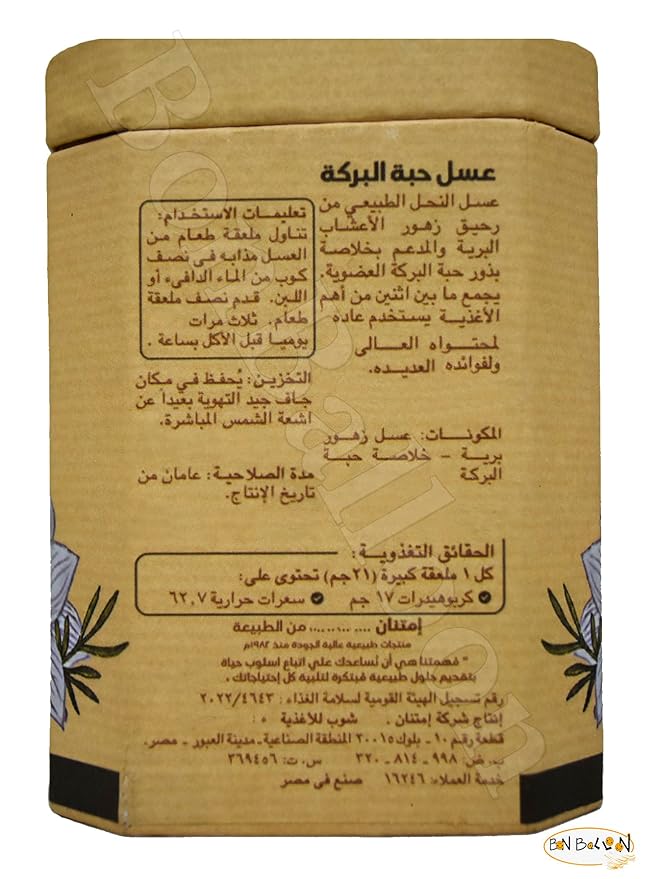 عسل حبة البركة
عسل النحل الطبيعي من
رحيق زهور الأعشاب
البرية والمدعم بخلاصة
بذور حبة البركة العضوية.
يجمع ما بين اثنين من أهم
الأغذية يستخدم عاده
لمحتواه العالى
ولفوائده العديده.
المكونات: عسل زهور
برية - خلاصة حبة
البركة
تعليمات الأستخدام:
تناول ملعقة طعام من
العسل مذابه فى نصف
كوب من الماء الدافىء أو
اللبن. قدم نصف ملعقة
طعام. ثلاث مرات
يوميا قبل الأكل بساعة.
التخزين: يُحفظ في مكان
جاف جيد التهوية بعيداً عن
اشعة الشمس المباشرة.
مدة الصلاحية: عامان من
تاريخ الإنتاج.
الحقائق التغذوية:
كل ١ ملعقة كبيرة (٢١جم) تحتوى على:
كربوهيدرات ١٧ جم سعرات حرارية ٦٢,٧
إمتنان .... من الطبيعة
منتجات طبيعية عالية الجودة منذ ١٩٨٢م
" فمهمتنا هي أن نساعدك علي اتباع اسلوب حياة
بتقديم حلول طبيعية مبتكرة لتلبية كل إحتياجاتك.
رقم تسجيل الهيئة القومية لسلامة الغذاء: ٢٠٢٢/٤٦٤٣
إنتاج شركة إمتنان. شوب للأغذية
قطعة رقم ١٠ - بلوك ٢٠٠١٥ المنطقة الصناعية - مدينة العبور - مصر.
ب. ض: ٩٩٨ - ٨١٤ - ٣٢٠ س. ت: ٣٦٩٤٥٦
خدمة العملاء: ١٦٢٤٦ صنع فى مصر
Bon Ballon
BON BALLON